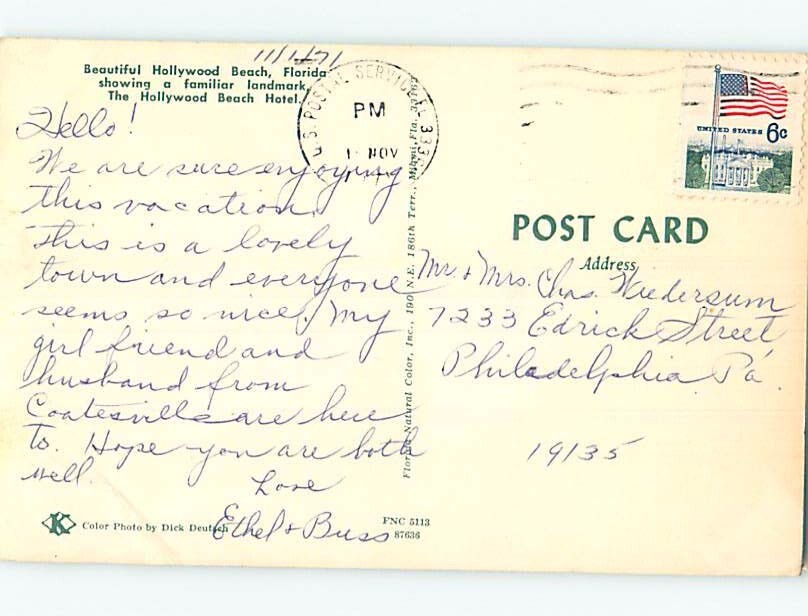 11/1/71
Beautiful Hollywood Beach, Florida
showing a familiar landmark,
The Hollywood Beach Hotel.
Hello!
We are sure enjoying
this vacation.
This is a lovely
town and everyone
seems so nice. My
girl friend and
husband from
Coatesville are here
to. Hope you are both
well.
Love
Ethel & Buss
Color Photo by Dick Deutsch
FNC 5113
87636
Florida Natural Color, Inc., 190 N.E. 186th Terr., Miami, Fla. 33162
U.S. POSTAL SERVICE FL 333
PM
1 NOV
UNITED STATES 6c
POST CARD
Address
Mr. & Mrs. Chas. Wiedersum
7233 Edrick Street
Philadelphia Pa.
19135